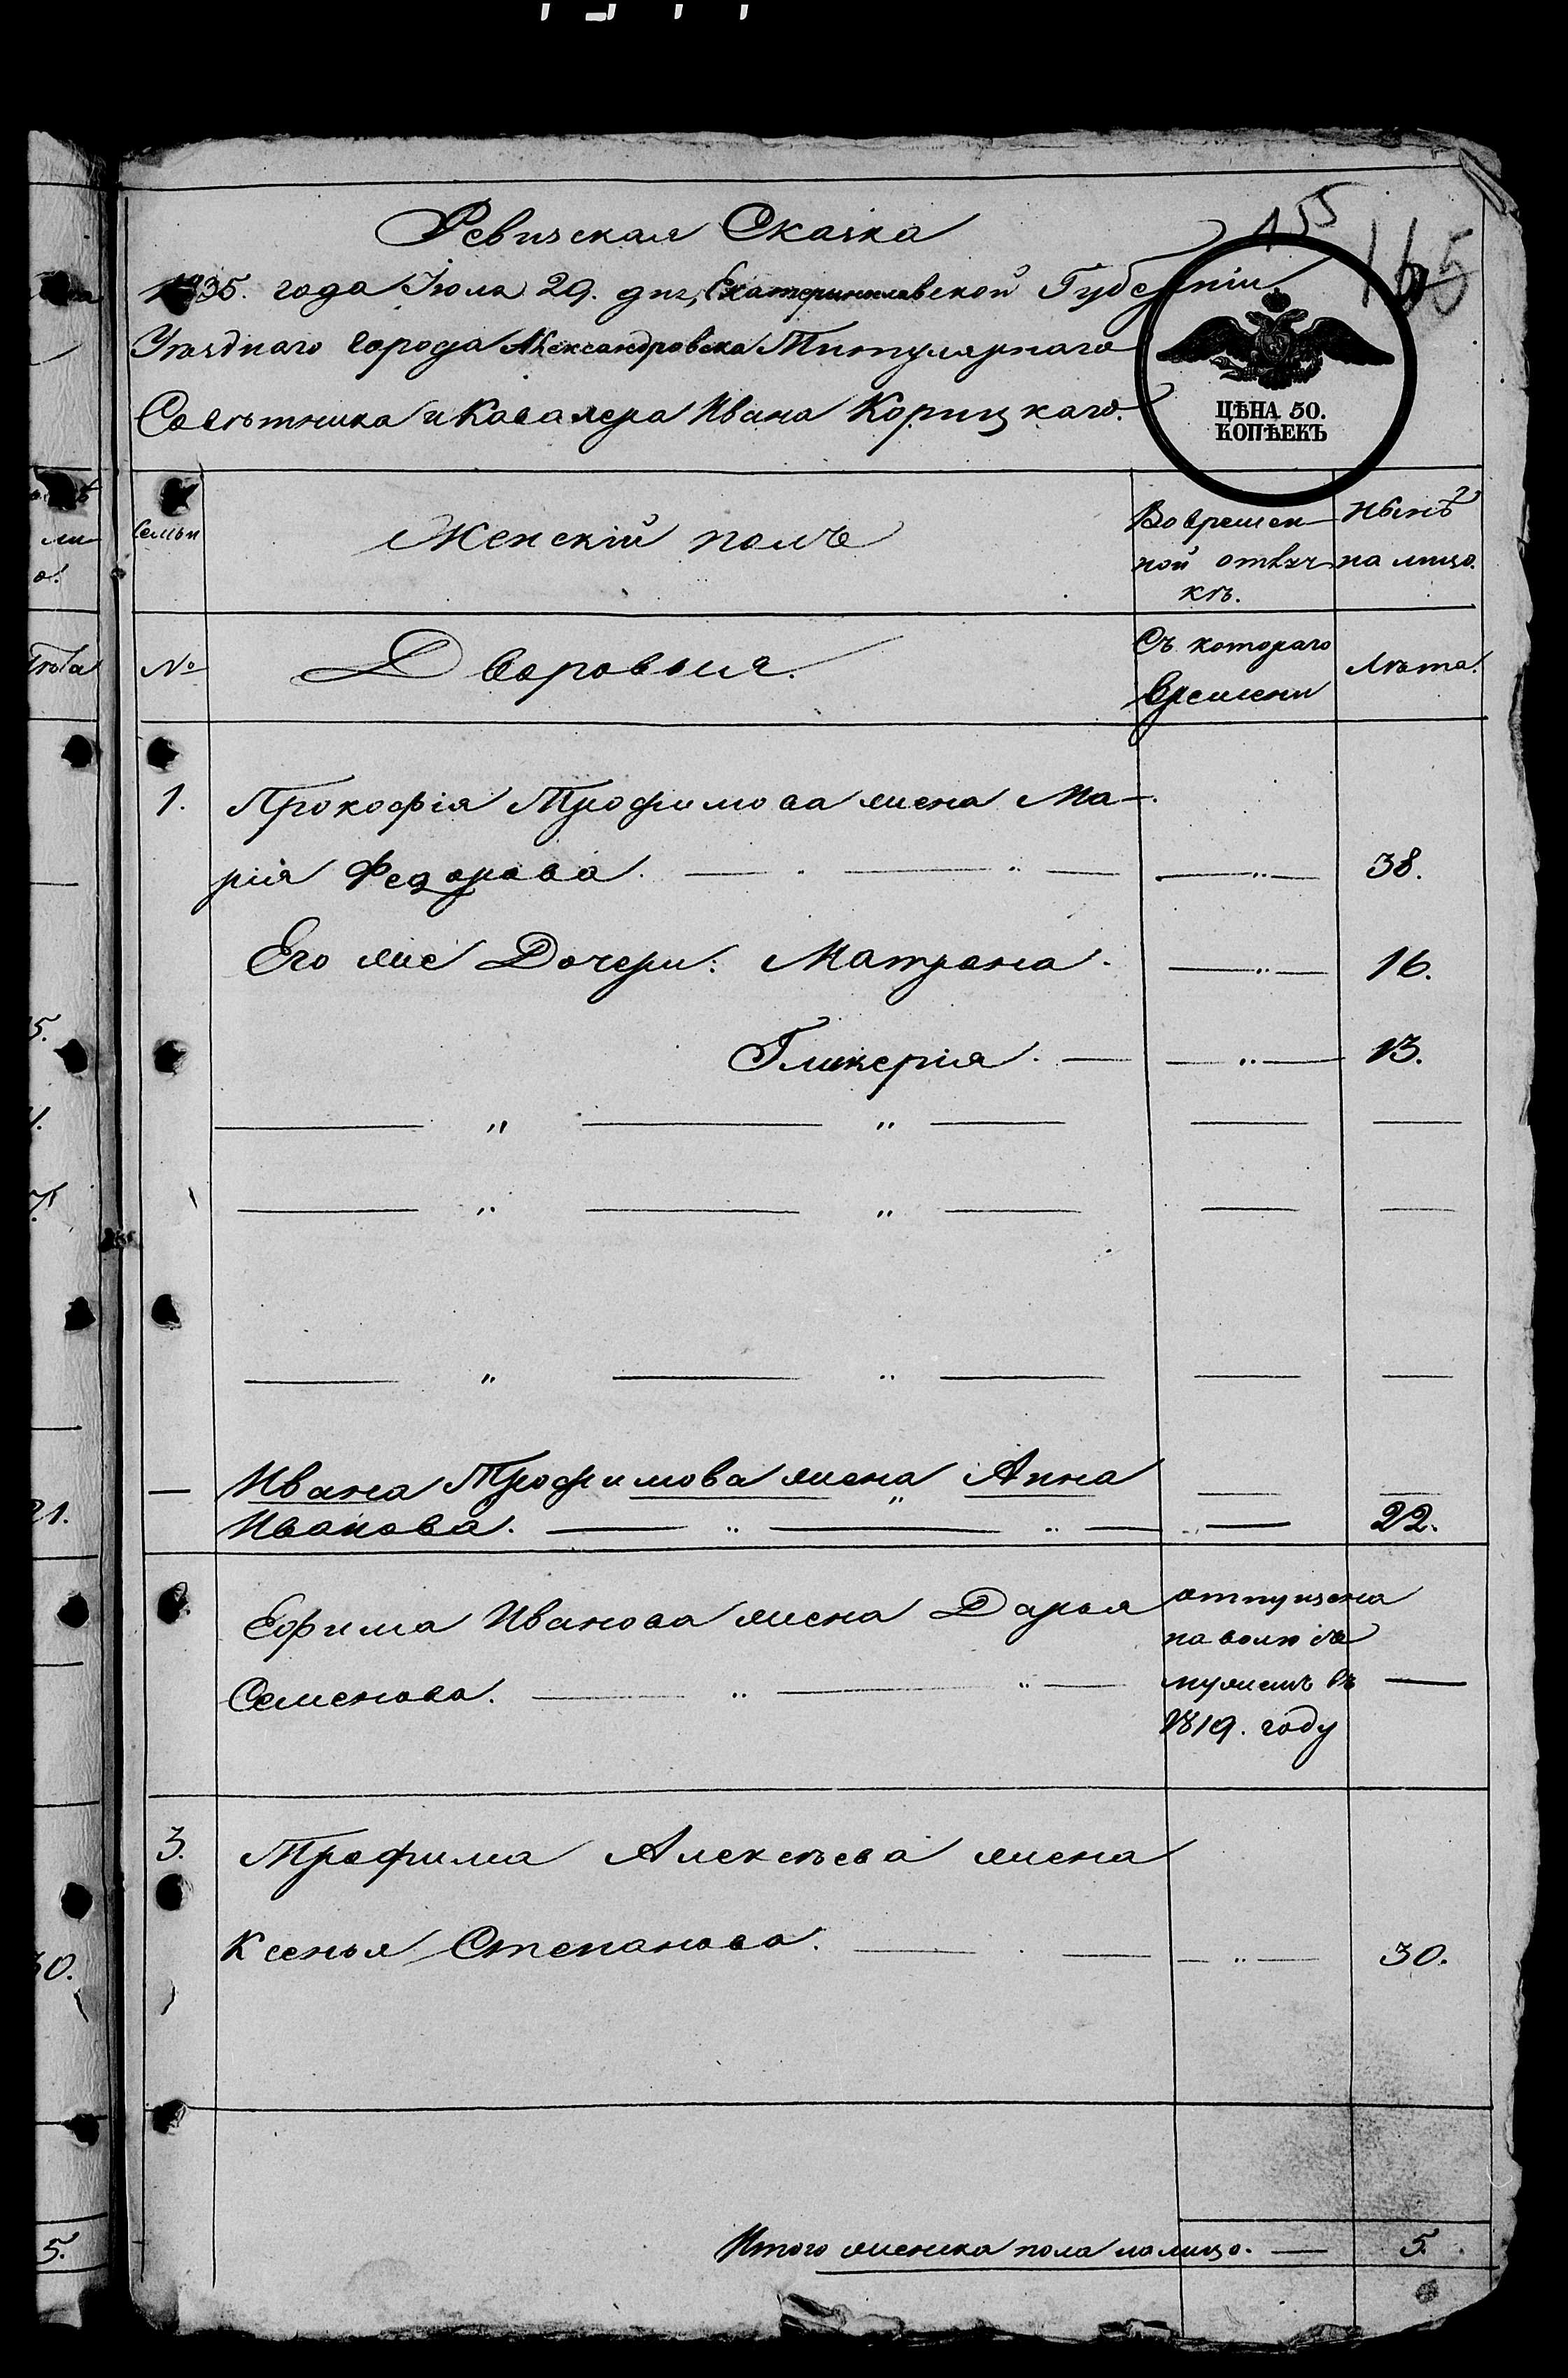 155
165
Ревизская Сказка
1835. года Іюля 29. дня, Екатеринославской Губерніи
Уѣзднаго города Александровска Титулярнаго
Совѣтника и Кавалера Ивана Корицкаго.
ЦѢНА 50.
КОПѢЕКЪ
Семьи
Женскій полъ
Во времен-
ной отлуч-
кѣ.
Нынѣ
на лицо.
№
Дворовыя.
Съ котораго
времени
Лѣта.
1. Прокофія Трофимова жена Ма-
рія Федорова. — . — „ — — „ — 38.
Его же Дочери: Матрона. — „ — 16.
Гликерія. — — „ — 13.
— „ — „ — — —
— „ — „ — — —
— „ — „ — — —
— Ивана Трофимова жена Анна
Иванова. — „ — „ — — 22.
Ефима Иванова жена Дарья
Семенова. — „ — „ —
отпущена
на волю съ
мужемъ въ —
1819. году
3. Трофима Алексѣева жена
Ксенья Степанова. — . — — „ — 30.
Итого женска пола на лицо. — 5.
21.
30.
5.